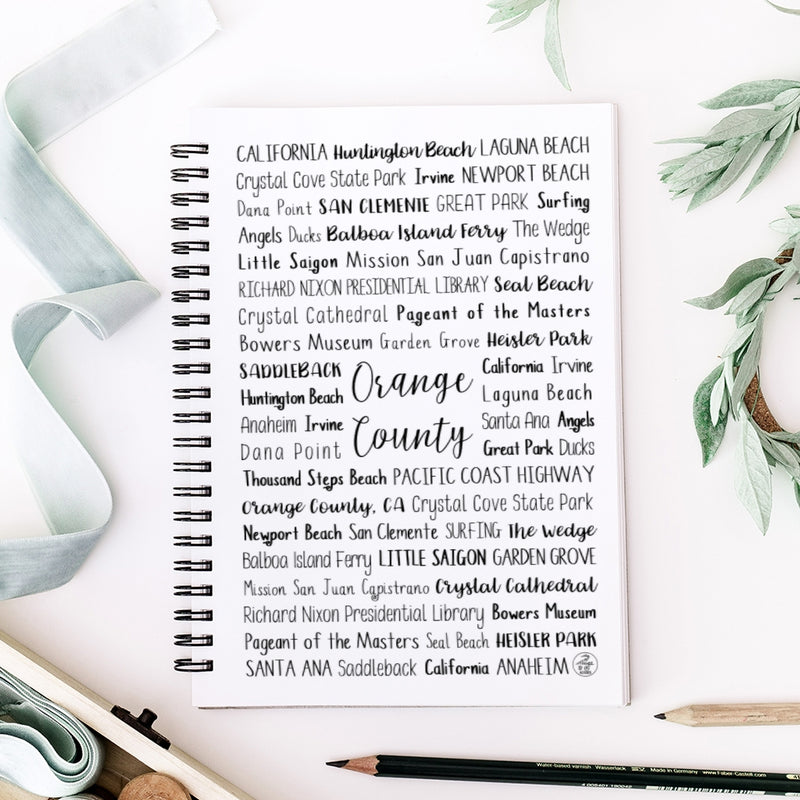 CALIFORNIA Huntington Beach LAGUNA BEACH
Crystal Cove State Park Irvine NEWPORT BEACH
Dana Point SAN CLEMENTE GREAT PARK Surfing
Angels Ducks Balboa Island Ferry The Wedge
Little Saigon Mission San Juan Capistrano
RICHARD NIXON PRESIDENTIAL LIBRARY Seal Beach
Crystal Cathedral Pageant of the Masters
Bowers Museum Garden Grove Heisler Park
SADDLEBACK
Huntington Beach
Anaheim Irvine
Dana Point
Orange
County
California Irvine
Laguna Beach
Santa Ana Angels
Great Park Ducks
Thousand Steps Beach PACIFIC COAST HIGHWAY
Orange County, CA Crystal Cove State Park
Newport Beach San Clemente SURFING The Wedge
Balboa Island Ferry LITTLE SAIGON GARDEN GROVE
Mission San Juan Capistrano Crystal Cathedral
Richard Nixon Presidential Library Bowers Museum
Pageant of the Masters Seal Beach HEISLER PARK
SANTA ANA Saddleback California ANAHEIM
Water-based varnish Wasserlack Made in Germany www.Faber-Castell.com